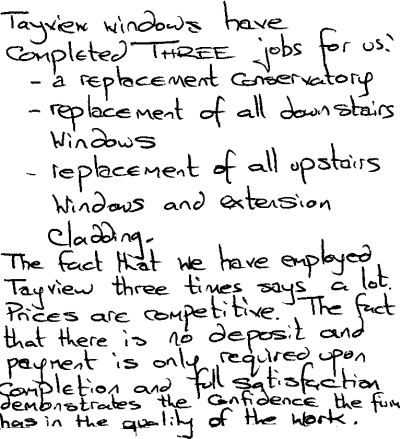 Tayview windows have
completed THREE jobs for us:
- a replacement conservatory
- replacement of all downstairs
windows
- replacement of all upstairs
windows and extension
cladding.
The fact that we have employed
Tayview three times says a lot.
Prices are competitive. The fact
that there is no deposit and
payment is only required upon
completion and full satisfaction
demonstrates the confidence the firm
has in the quality of the work.